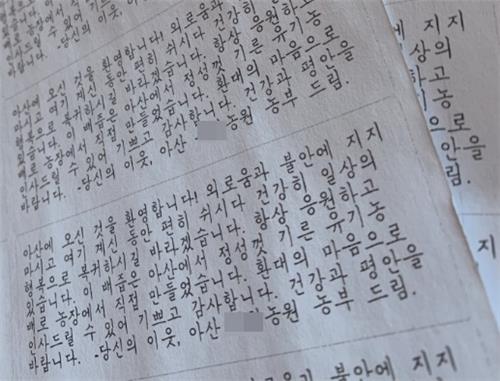 인사드릴 수 있어
바랍니다. -당신의 이웃,
아산에 오신 것을 환영합니다! 외로움과
마시고 여기 계신 동안 편히 쉬시다 건강히
행복으로 복귀하시길 바라겠습니다. 항상 응원하
있습니다. 이 배즙은 아산에서 정성껏 기른 유기농
배로 농장에서 직접 만들었습니다. 환대의 마음으로
인사드릴 수 있어 기쁘고 감사합니다. 건강과 평안을
바랍니다. -당신의 이웃, 아산 농원 농부 드림.
지지
상의
고
농
로
을
림.
아산에 오신 것을 환영합니다! 외로움과 불안에 지지
마시고 여기 계신 동안 편히 쉬시다 건강히 일상의
행복으로 복귀하시길 바라겠습니다. 항상 응원하고
있습니다. 이 배즙은 아산에서 정성껏 기른 유기농
배로 농장에서 직접 만들었습니다. 환대의 마음으로
인사드릴 수 있어 기쁘고 감사합니다. 건강과 평안을
바랍니다. -당신의 이웃, 아산 농원 농부 드림.
지
불안에 지지